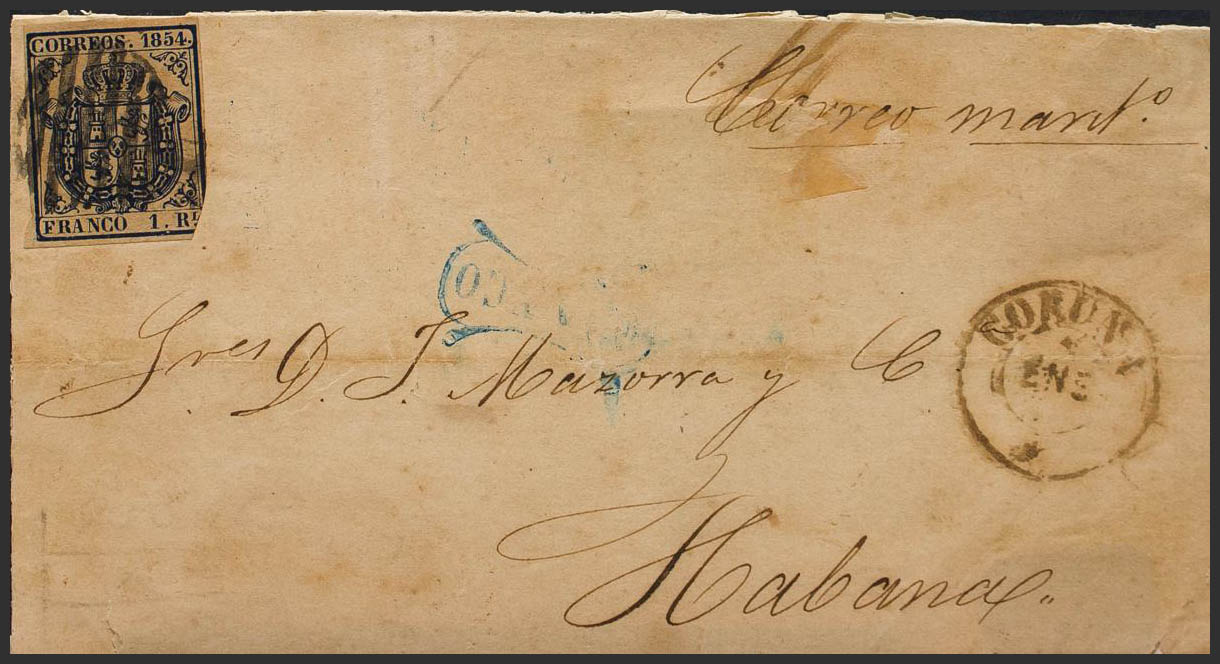 CORREOS. 1854.
FRANCO 1. Rl
Correo marit.o
Sres D. J. Mazorra y C.
Habana.
CORUÑA
ENE